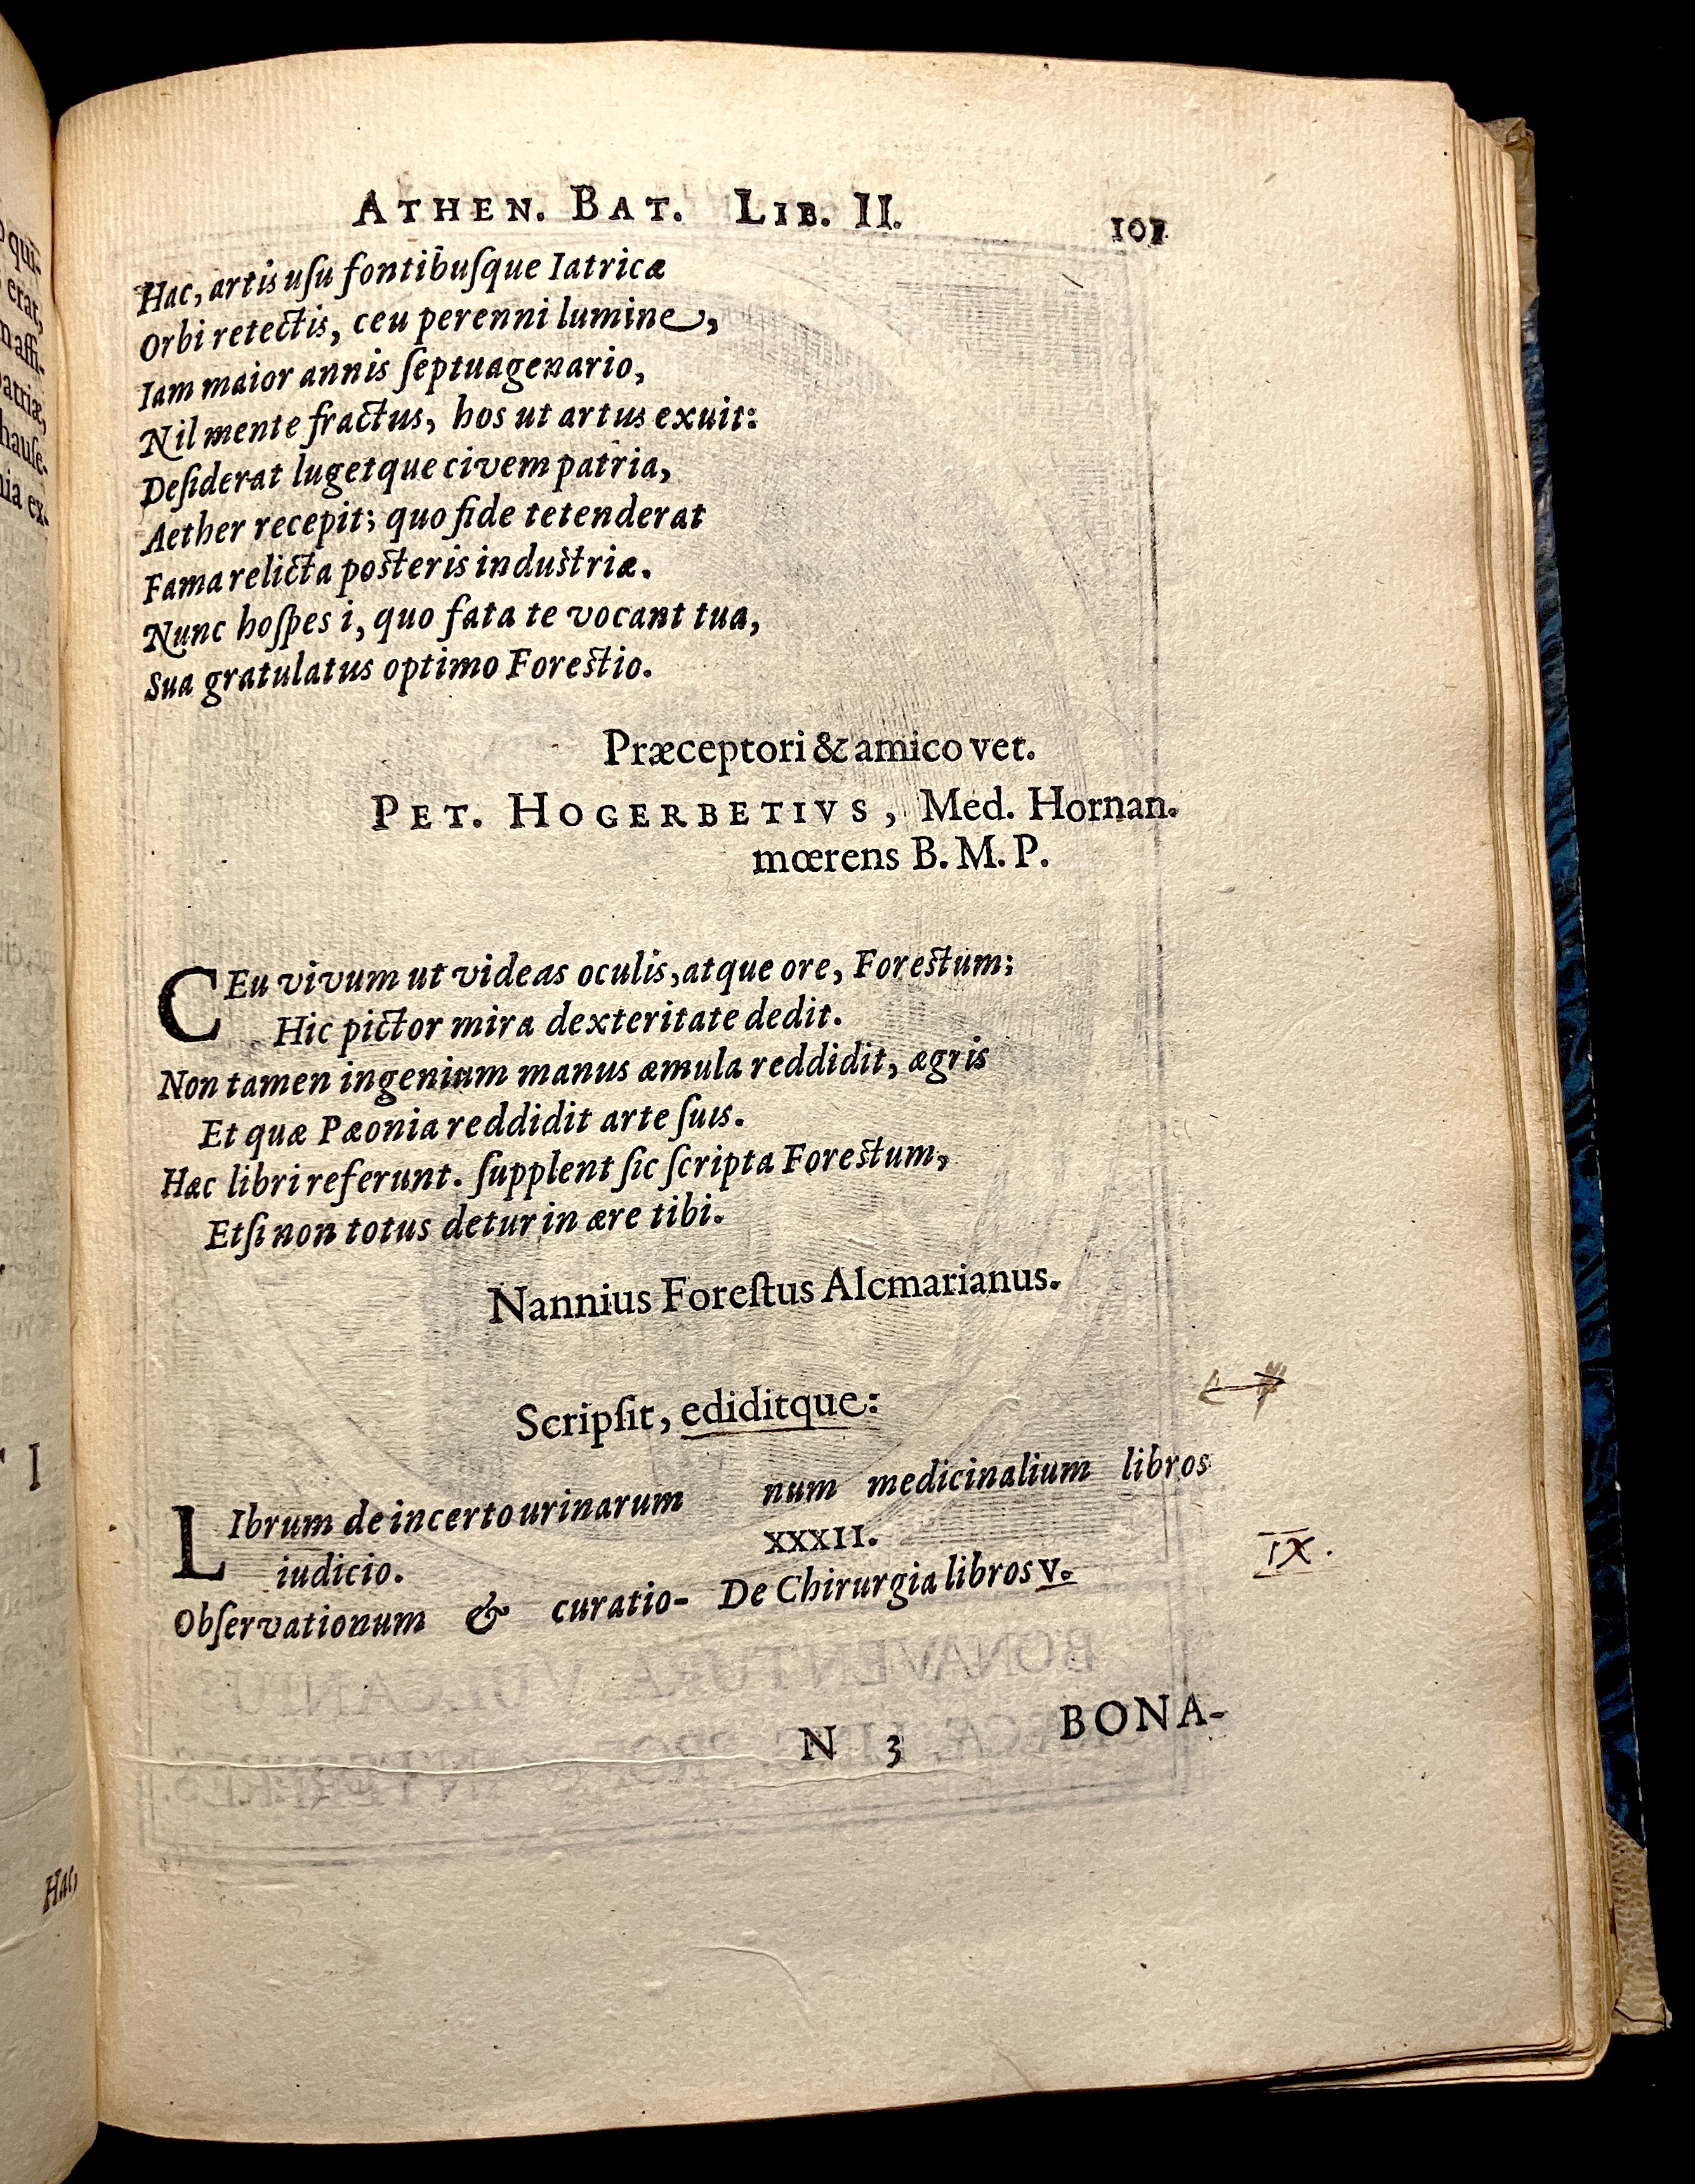 ATHEN. BAT. LIB. II. 101
Hac, artis uſu fontibuſque Iatricæ
Orbi retectis, ceu perenni lumine,
Iam maior annis ſeptuagenario,
Nil mente fractus, hos ut artus exuit:
Deſiderat lugetque civem patria,
Aether recepit; quo fide tetenderat
Fama relicta posteris industriæ.
Nunc hoſpes i, quo fata te vocant tua,
Sua gratulatus optimo Forestio.
Præceptori & amico vet.
PET. HOGERBETIVS, Med. Hornan.
mœrens B. M. P.
CEu vivum ut videas oculis, atque ore, Forestum;
Hic pictor mira dexteritate dedit.
Non tamen ingenium manus æmula reddidit, ægris
Et quæ Pæonia reddidit arte ſuis.
Hæc libri referunt. ſupplent ſic ſcripta Forestum,
Etſi non totus detur in ære tibi.
Nannius Foreſtus Alcmarianus.
Scripſit, ediditque:
LIbrum de incerto urinarum
iudicio.
Obſervationum & curatio-
num medicinalium libros
XXXII.
De Chirurgia libros V.
IX.
N 3 BONA-
qui-
erat,
affi-
patriæ,
hauſe-
ex-
I
Hac,